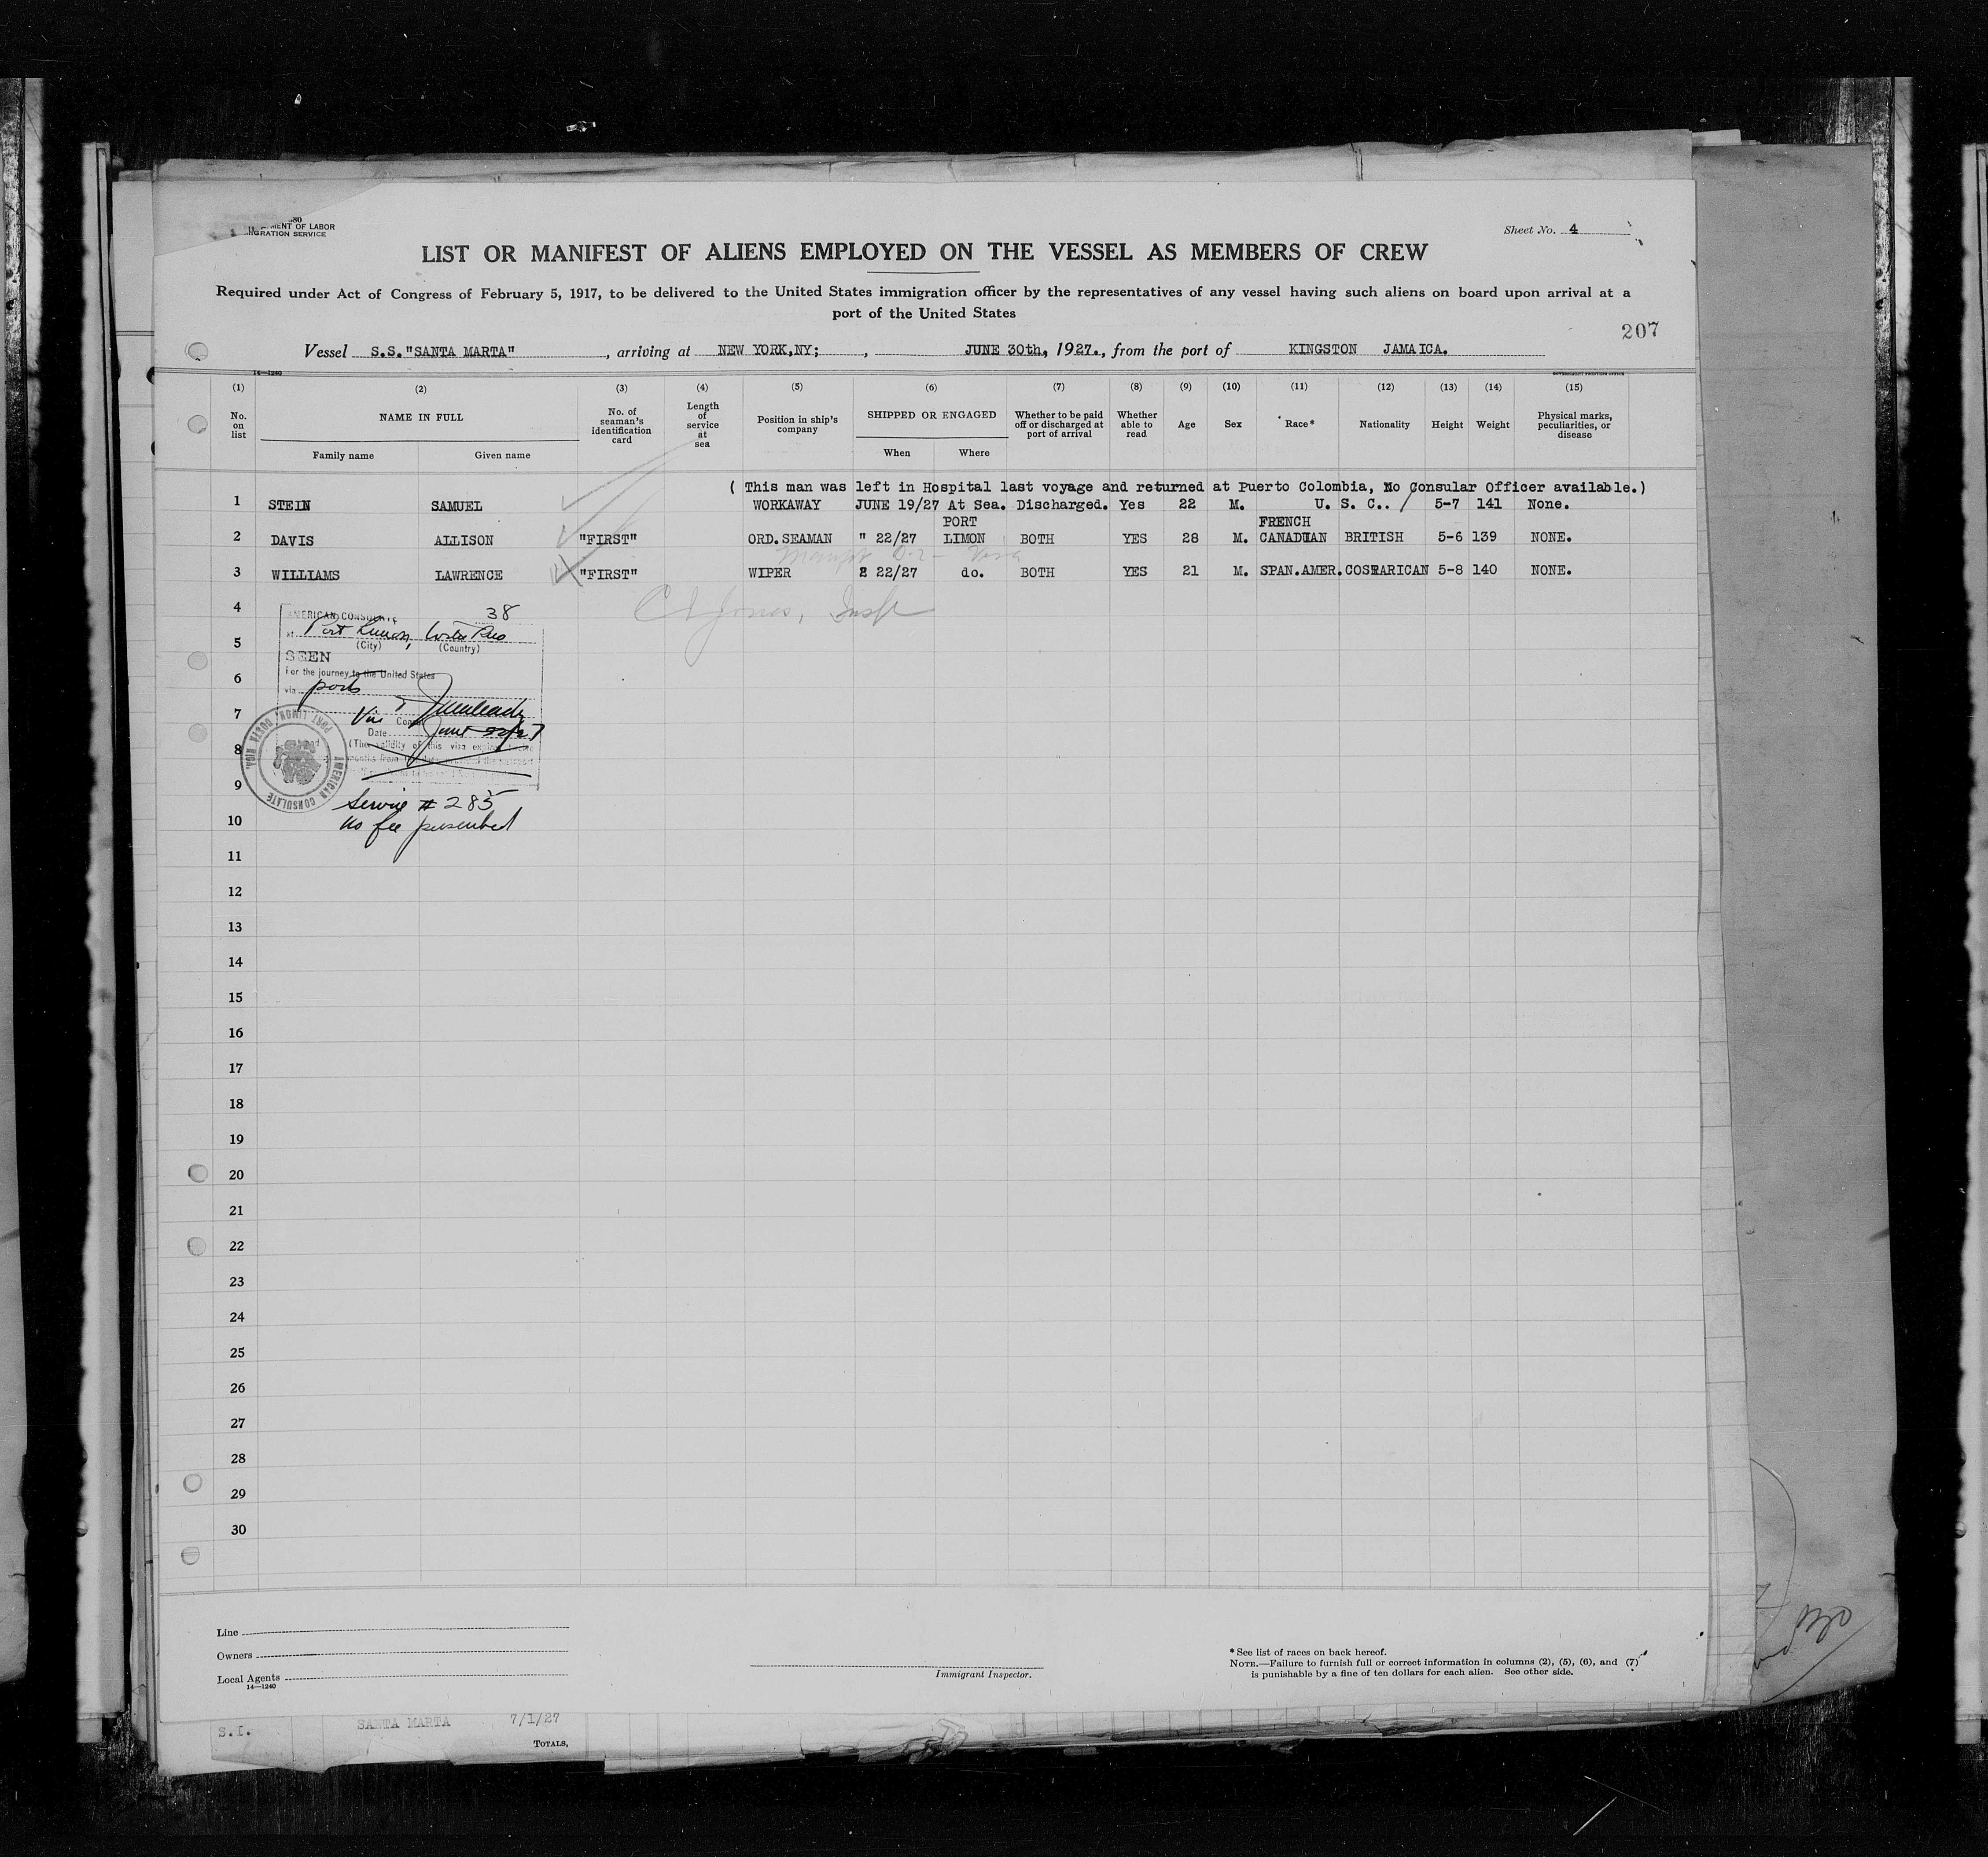 MENT OF LABOR
GRATION SERVICE
Sheet No. 4
LIST OR MANIFEST OF ALIENS EMPLOYED ON THE VESSEL AS MEMBERS OF CREW
Required under Act of Congress of February 5, 1917, to be delivered to the United States immigration officer by the representatives of any vessel having such aliens on board upon arrival at a
port of the United States
207
Vessel S.S."SANTA MARTA" , arriving at NEW YORK,NY; , JUNE 30th, 1927., from the port of KINGSTON JAMAICA.
14—1240
(1) (2) (3) (4) (5) (6) (7) (8) (9) (10) (11) (12) (13) (14) (15)
No. on list NAME IN FULL Family name Given name No. of seaman's identification card Length of service at sea Position in ship's company SHIPPED OR ENGAGED When Where Whether to be paid off or discharged at port of arrival Whether able to read Age Sex Race* Nationality Height Weight Physical marks, peculiarities, or disease
( This man was left in Hospital last voyage and returned at Puerto Colombia, No Consular Officer available.)
1 STEIN SAMUEL WORKAWAY JUNE 19/27 At Sea. Discharged. Yes 22 M. U. S. C.. 5-7 141 None.
PORT FRENCH
2 DAVIS ALLISON "FIRST" ORD.SEAMAN " 22/27 LIMON BOTH YES 28 M. CANADIAN BRITISH 5-6 139 NONE.
3 WILLIAMS LAWRENCE "FIRST" WIPER 22/27 do. BOTH YES 21 M. SPAN.AMER. COSTARICAN 5-8 140 NONE.
4
AMERICAN CONSULATE 38
at Port Limon, Costa Rica
5
(City) (Country)
SEEN
For the journey to the United States
6
via ports
7
Vice Consul
Date June 22/27
8
(The validity of this visa expires
AMERICAN CONSULATE PORT LIMON, COSTA RICA.
9
Service # 285
10
no fee prescribed
11
12
13
14
15
16
17
18
19
20
21
22
23
24
25
26
27
28
29
30
Line
Owners
Local Agents
14—1240
Immigrant Inspector.
* See list of races on back hereof.
NOTE.—Failure to furnish full or correct information in columns (2), (5), (6), and (7)
is punishable by a fine of ten dollars for each alien. See other side.
S.I. SANTA MARTA 7/1/27
TOTALS,